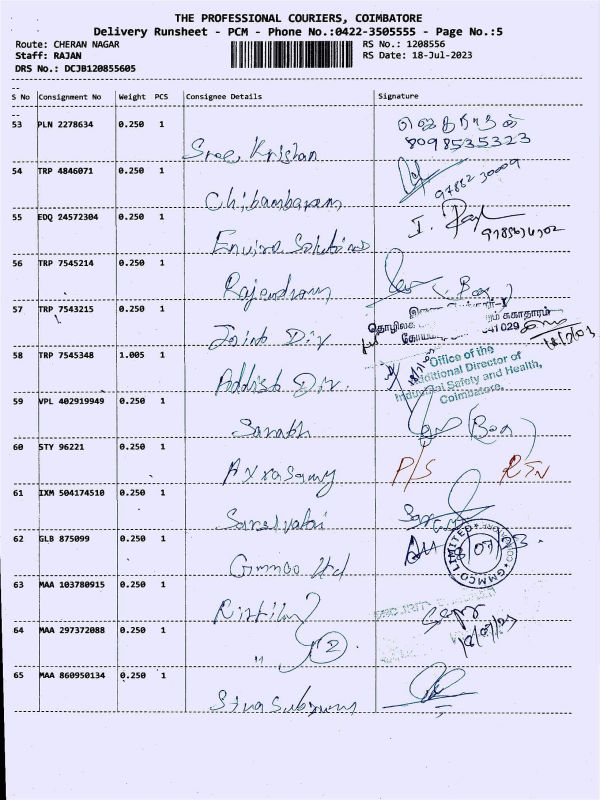 THE PROFESSIONAL COURIERS, COIMBATORE
Delivery Runsheet - PCM - Phone No.:0422-3505555 - Page No.:5
Route: CHERAN NAGAR RS No.: 1208556
Staff: RAJAN RS Date: 18-Jul-2023
DRS No.: DCJB120855605
S No Consignment No Weight PCS Consignee Details Signature
53 PLN 2278634 0.250 1
8098535323
Sree Krishan
54 TRP 4846071 0.250 1
Chibambaram
55 EDQ 24572304 0.250 1
Enviro Solutions
56 TRP 7545214 0.250 1
Rajendran
57 TRP 7543215 0.250 1
தொழிலக சுகாதாரம்
641029
Joint Div
58 TRP 7545348 1.005 1
Office of the
Additional Director of
Industrial Safety and Health,
Coimbatore.
Addish Div.
59 VPL 402919949 0.250 1
Sarath
60 STY 96221 0.250 1
P/S RTN
Ayyasamy
61 IXM 504174510 0.250 1
62 GLB 875099 0.250 1
GMMCO LIMITED
Gmmco Ltd
63 MAA 103780915 0.250 1
SECURITY
64 MAA 297372088 0.250 1
18/07/23
" 2
65 MAA 860950134 0.250 1